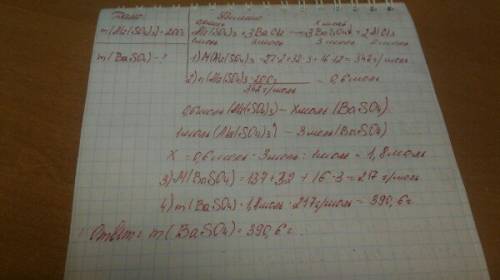 Дано:
Решение
m(Al2(SO4)3) = 200г
m(BaSO4) - ?
0,6моль Xмоль
Al2(SO4)3 + 3BaCl2 → 3BaSO4↓ + 2AlCl3
1моль 3моль 3моль 2моль
1) M(Al2(SO4)3 = 27·2 + 32·3 + 16·12 = 342г/моль
2) n(Al2(SO4)3 = 200г / 342г/моль = 0,6моль
0,6моль (Al2(SO4)3) - Xмоль (BaSO4)
1моль (Al2(SO4)3) - 3моль (BaSO4)
X = 0,6моль · 3моль : 1моль = 1,8моль
3) M(BaSO4) = 137 + 32 + 16·3 = 217г/моль
4) m(BaSO4) = 1,8моль · 217г/моль = 390,6г
Ответ: m(BaSO4) = 390,6г.